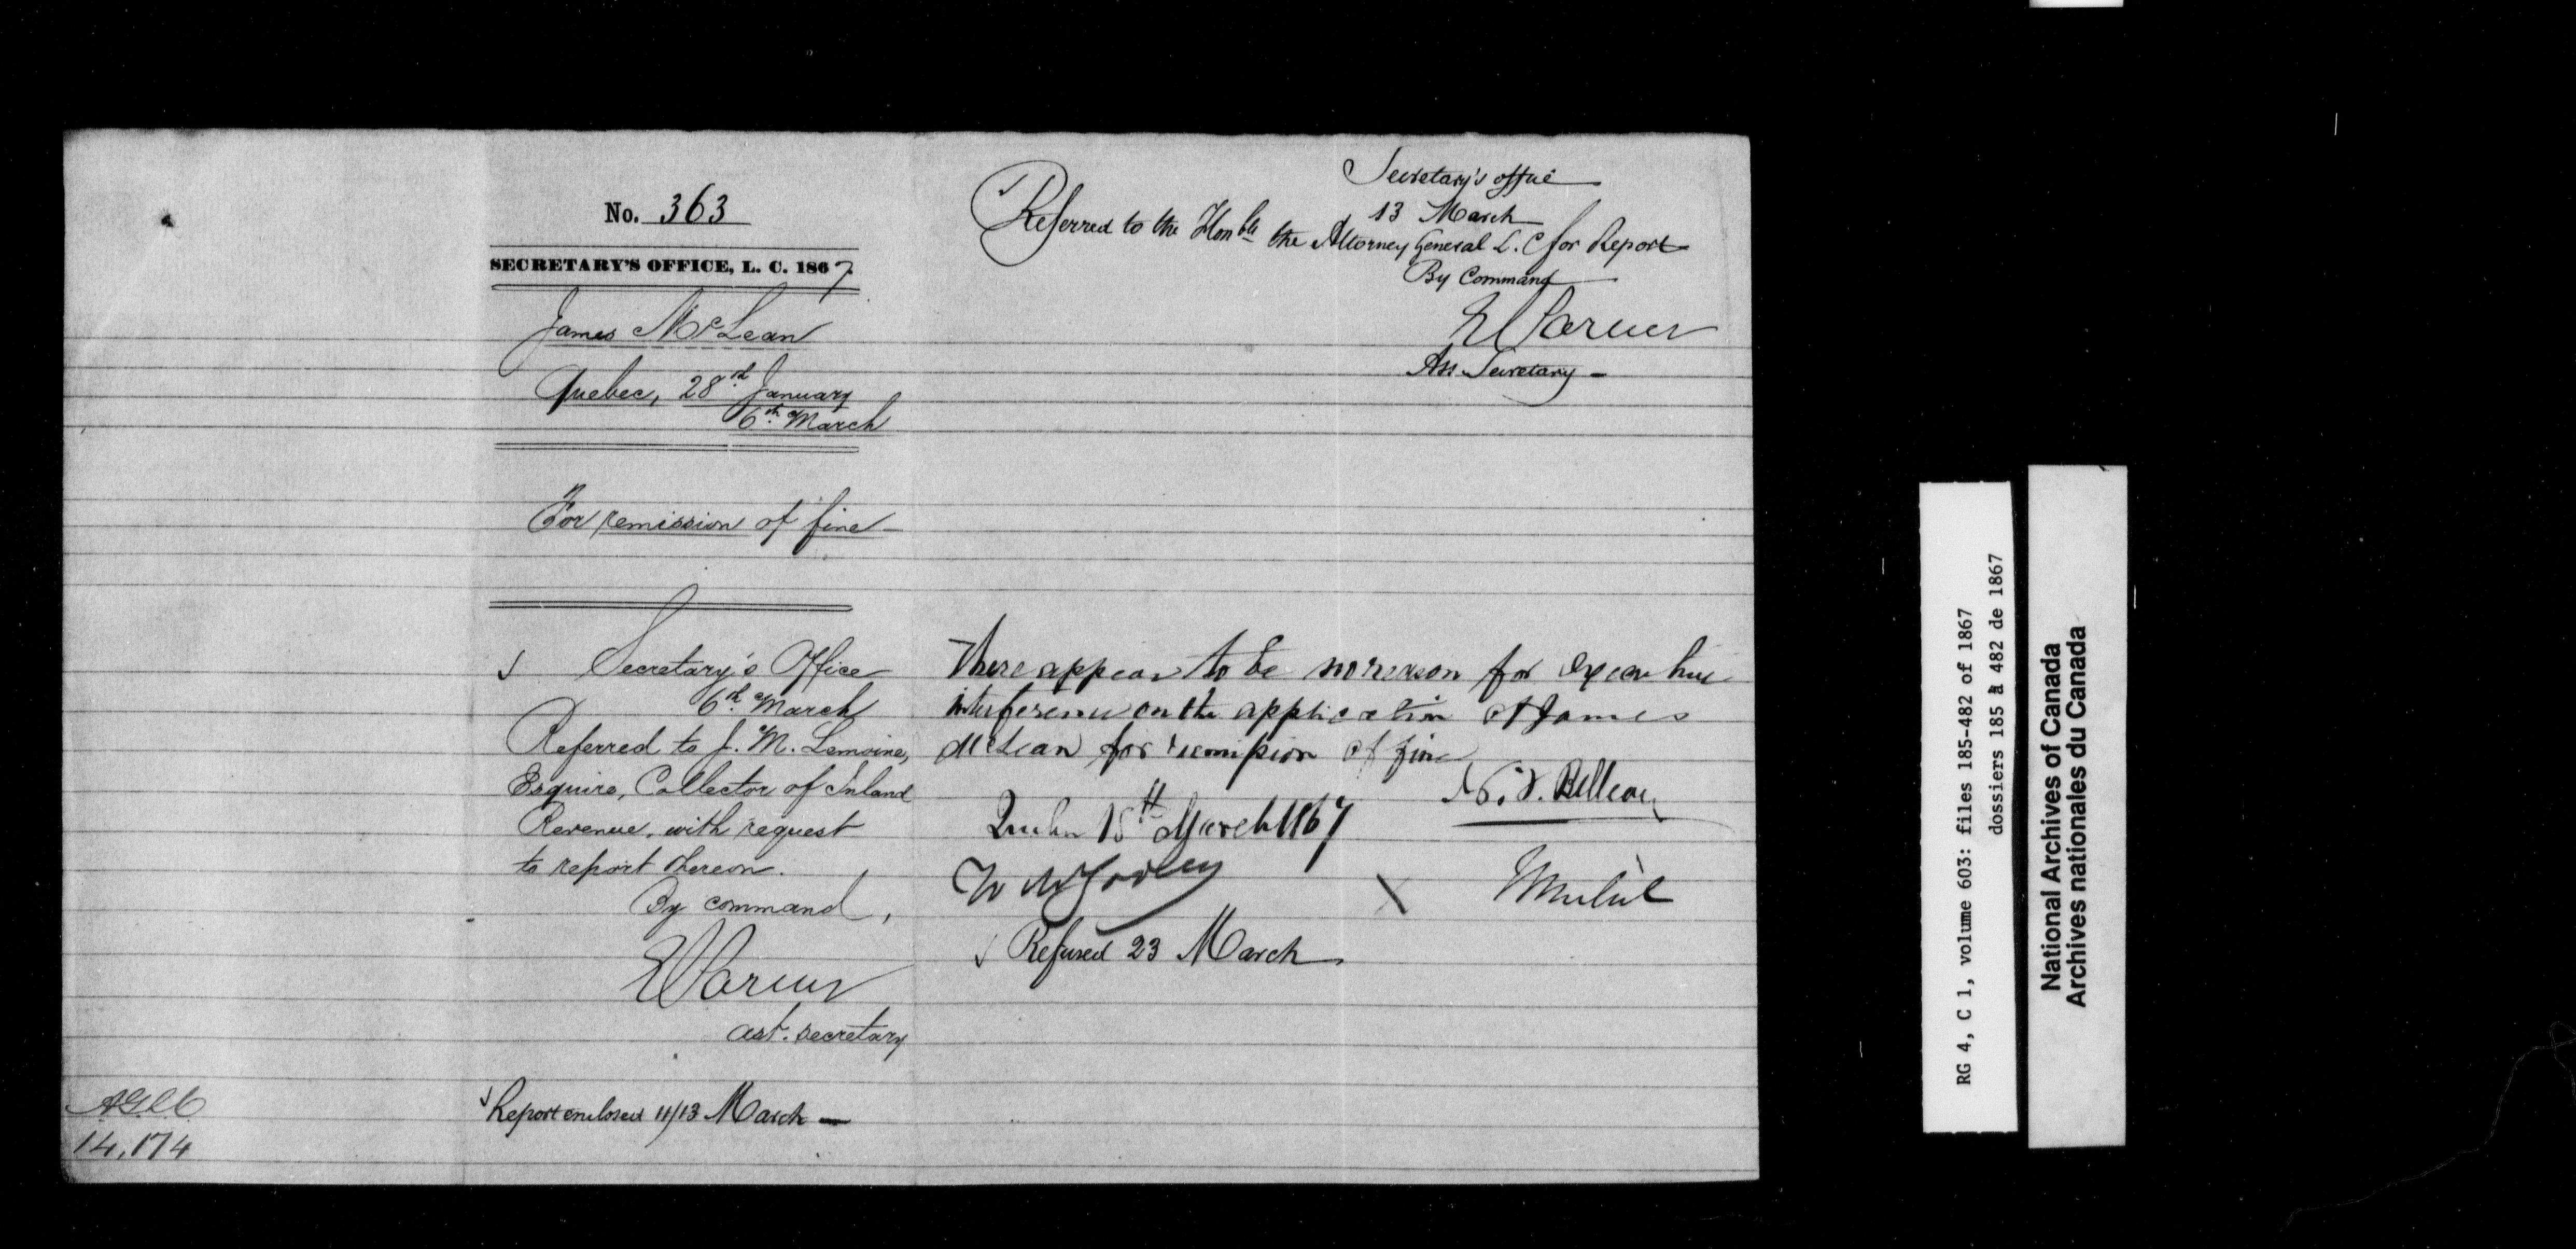 No. 363
SECRETARY'S OFFICE, L. C. 1867
James McLean
Quebec, 28d January
6th March
For remission of fine
Secretary's Office
6th March
Referred to J. M. Lemoine,
Esquire, Collector of Inland
Revenue, with request
to report thereon.
By command,
E Parent
Ast. Secretary
Report enclosed 11/13 March
AGLC
14,174
Secretary's office
13 March
Referred to the Honble the Attorney General L. C for Report
By Command
E Parent
Ass Secretary
There appear to be no reason for Executive
interference on the application of James
McLean for remission of fine
N. F. Belleau
Quebec 15th March 1867
Refused 23 March
RG 4, C 1, volume 603: files 185-482 of 1867
dossiers 185 à 482 de 1867
National Archives of Canada
Archives nationales du Canada